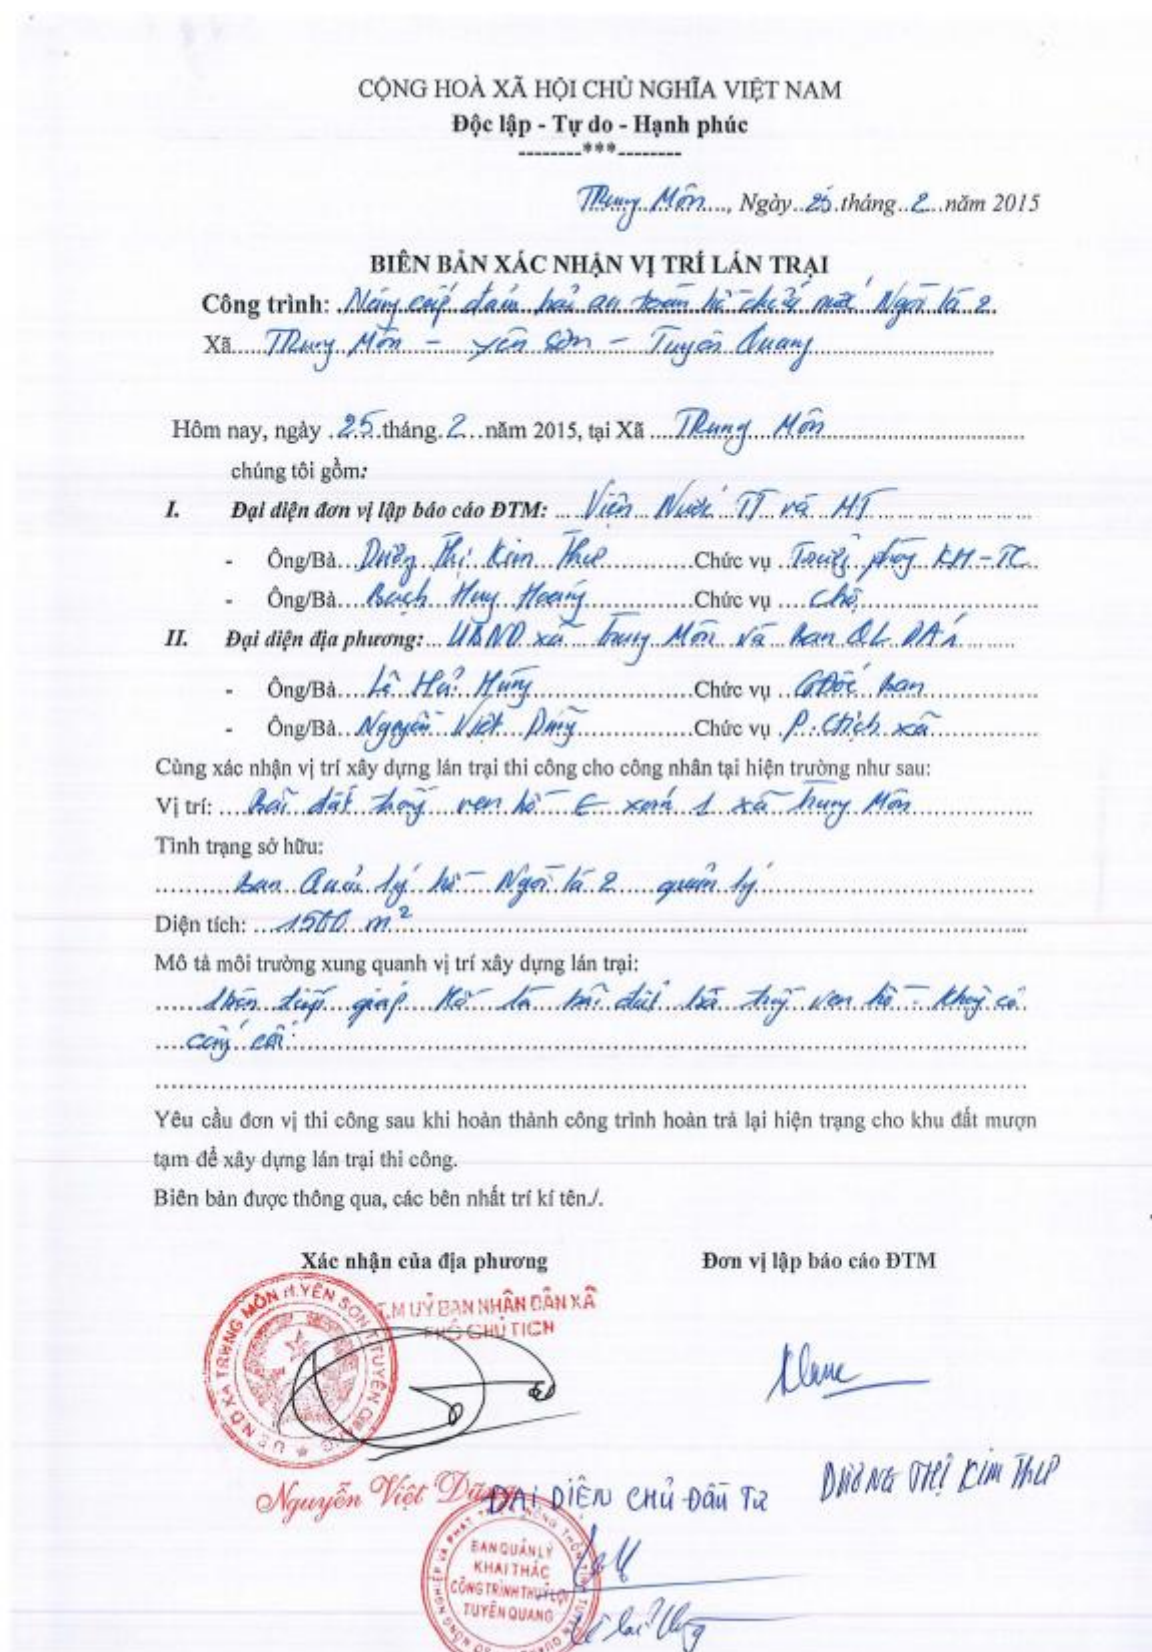 CỘNG HOÀ XÃ HỘI CHỦ NGHĨA VIỆT NAM
Độc lập - Tự do - Hạnh phúc
--------***--------
Trung Môn..., Ngày 25 tháng 2 năm 2015
BIÊN BẢN XÁC NHẬN VỊ TRÍ LÁN TRẠI
Công trình: Nâng cấp đảm bảo an toàn hồ chứa nước Ngòi là 2
Xã Trung Môn - Yên Sơn - Tuyên Quang
Hôm nay, ngày 25 tháng 2 năm 2015, tại Xã Trung Môn
chúng tôi gồm:
I. Đại diện đơn vị lập báo cáo ĐTM: Viện Nước TT và MT
- Ông/Bà Dương Thị Kim Thư Chức vụ phòng KH-TC
- Ông/Bà Bạch Huy Hoàng Chức vụ
II. Đại diện địa phương: UBND xã Trung Môn và Ban QL
- Ông/Bà Lê Hùng Chức vụ GĐốc Ban
- Ông/Bà Nguyễn Việt Dũng Chức vụ P. Ctịch xã
Cùng xác nhận vị trí xây dựng lán trại thi công cho công nhân tại hiện trường như sau:
Vị trí: Bãi đất ven hồ xóm 1 xã Trung Môn
Tình trạng sở hữu:
Ban Quản lý hồ Ngòi là 2 quản lý
Diện tích: 1500 m²
Mô tả môi trường xung quanh vị trí xây dựng lán trại:
giáp hồ là bãi đất ven hồ. Không có
cây cối.
Yêu cầu đơn vị thi công sau khi hoàn thành công trình hoàn trả lại hiện trạng cho khu đất mượn
tạm để xây dựng lán trại thi công.
Biên bản được thông qua, các bên nhất trí kí tên./.
Xác nhận của địa phương Đơn vị lập báo cáo ĐTM
T.M UỶ BAN NHÂN DÂN XÃ
PHÓ CHỦ TỊCH
U.B.N.D XÃ TRUNG MÔN H.YÊN SƠN T.TUYÊN QUANG
Nguyễn Việt Dũng
DƯƠNG THỊ KIM THƯ
ĐẠI DIỆN CHỦ ĐẦU TƯ
BAN QUẢN LÝ
KHAI THÁC
CÔNG TRÌNH THUỶ LỢI
TUYÊN QUANG